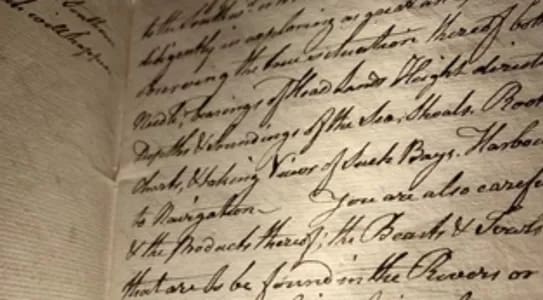 to the
diligently in exploring as great an
observing the true situation thereof both
Needle; bearings of Head Lands Height directi
Depths & Soundings of the Sea, Shoals, Rock
Charts, & taking Views of Such Bays, Harbou
to Navigation You are also carefu
& the Products thereof; the Beasts & Fowls
that are to be found in the Rivers or